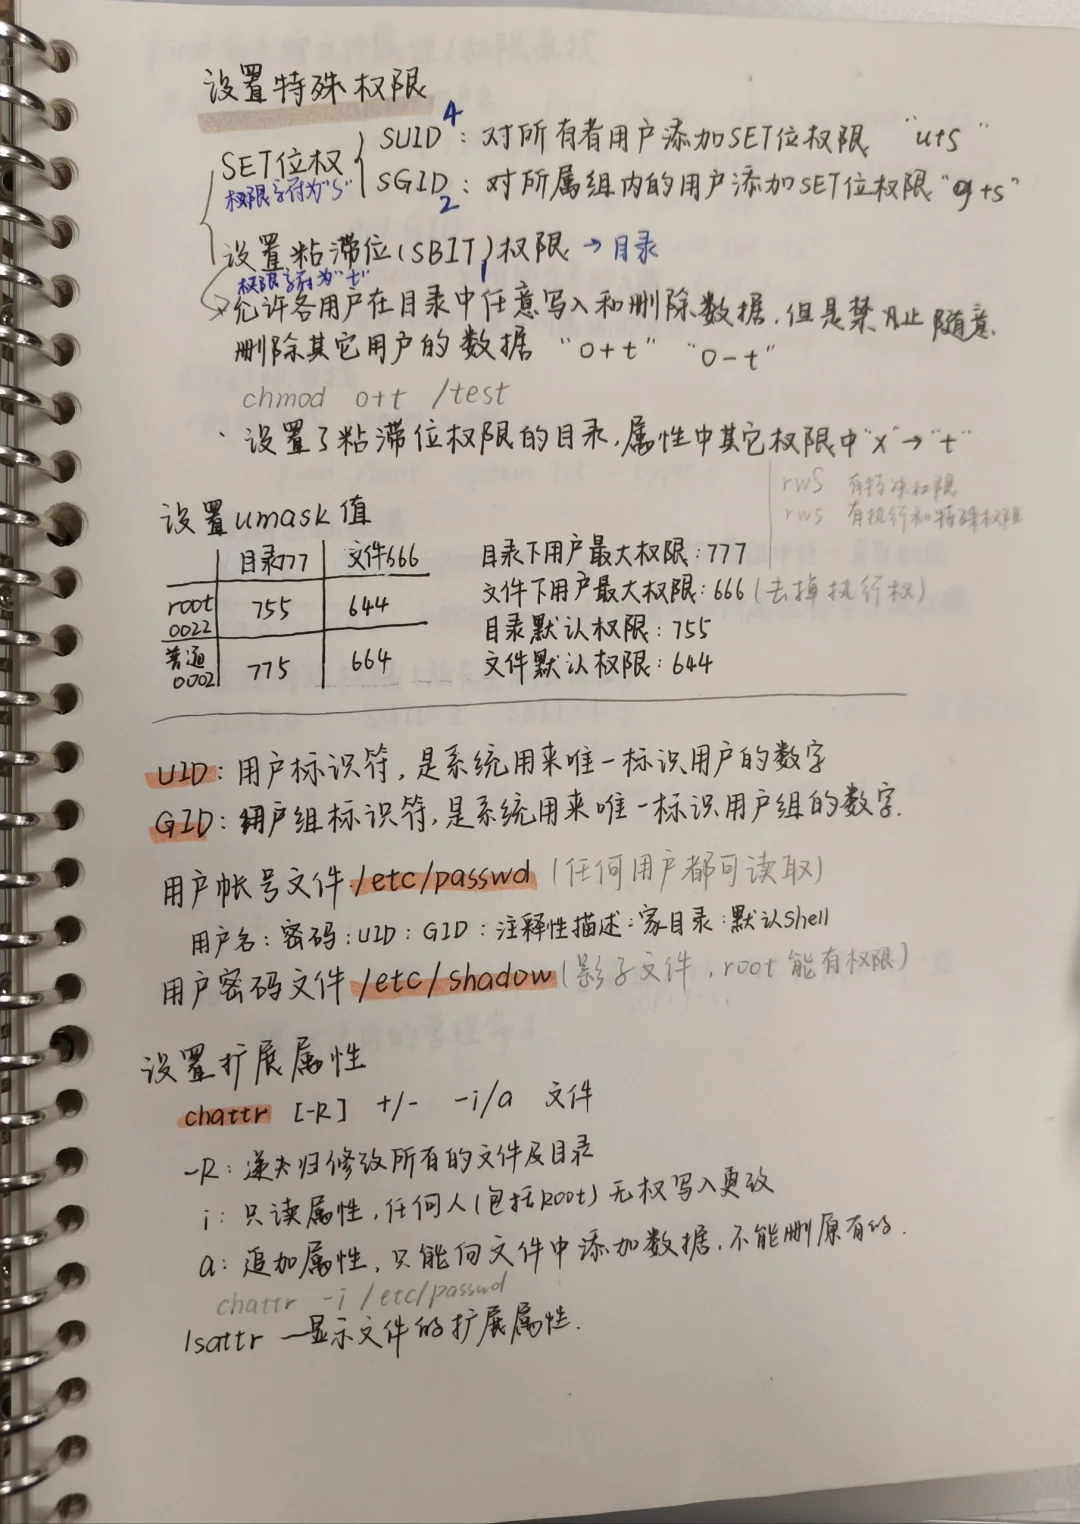 设置特殊权限
SET位权
权限字符为"s"
SUID 4：对所有者用户添加SET位权限 "u+s"
SGID 2：对所属组内的用户添加SET位权限"g+s"
设置粘滞位(SBIT)权限 → 目录
1
权限字符为"t"
允许各用户在目录中任意写入和删除数据，但是禁止随意
删除其它用户的数据 "o+t" "o-t"
chmod o+t /test
· 设置了粘滞位权限的目录，属性中其它权限中"x"→"t"
rwS 有特殊权限
rws 有执行和特殊权限
设置umask值
目录777 文件666
root 0022 755 644
普通 0002 775 664
目录下用户最大权限：777
文件下用户最大权限：666(去掉执行权)
目录默认权限：755
文件默认权限：644
UID：用户标识符，是系统用来唯一标识用户的数字
GID：用户组标识符，是系统用来唯一标识用户组的数字.
用户帐号文件/etc/passwd (任何用户都可读取)
用户名：密码：UID：GID：注释性描述：家目录：默认shell
用户密码文件/etc/shadow(影子文件，root能有权限)
设置扩展属性
chattr [-R] +/- -i/a 文件
-R：递归修改所有的文件及目录
i：只读属性，任何人(包括root)无权写入更改
a：追加属性，只能向文件中添加数据，不能删原有的.
chattr -i /etc/passwd
lsattr —显示文件的扩展属性.